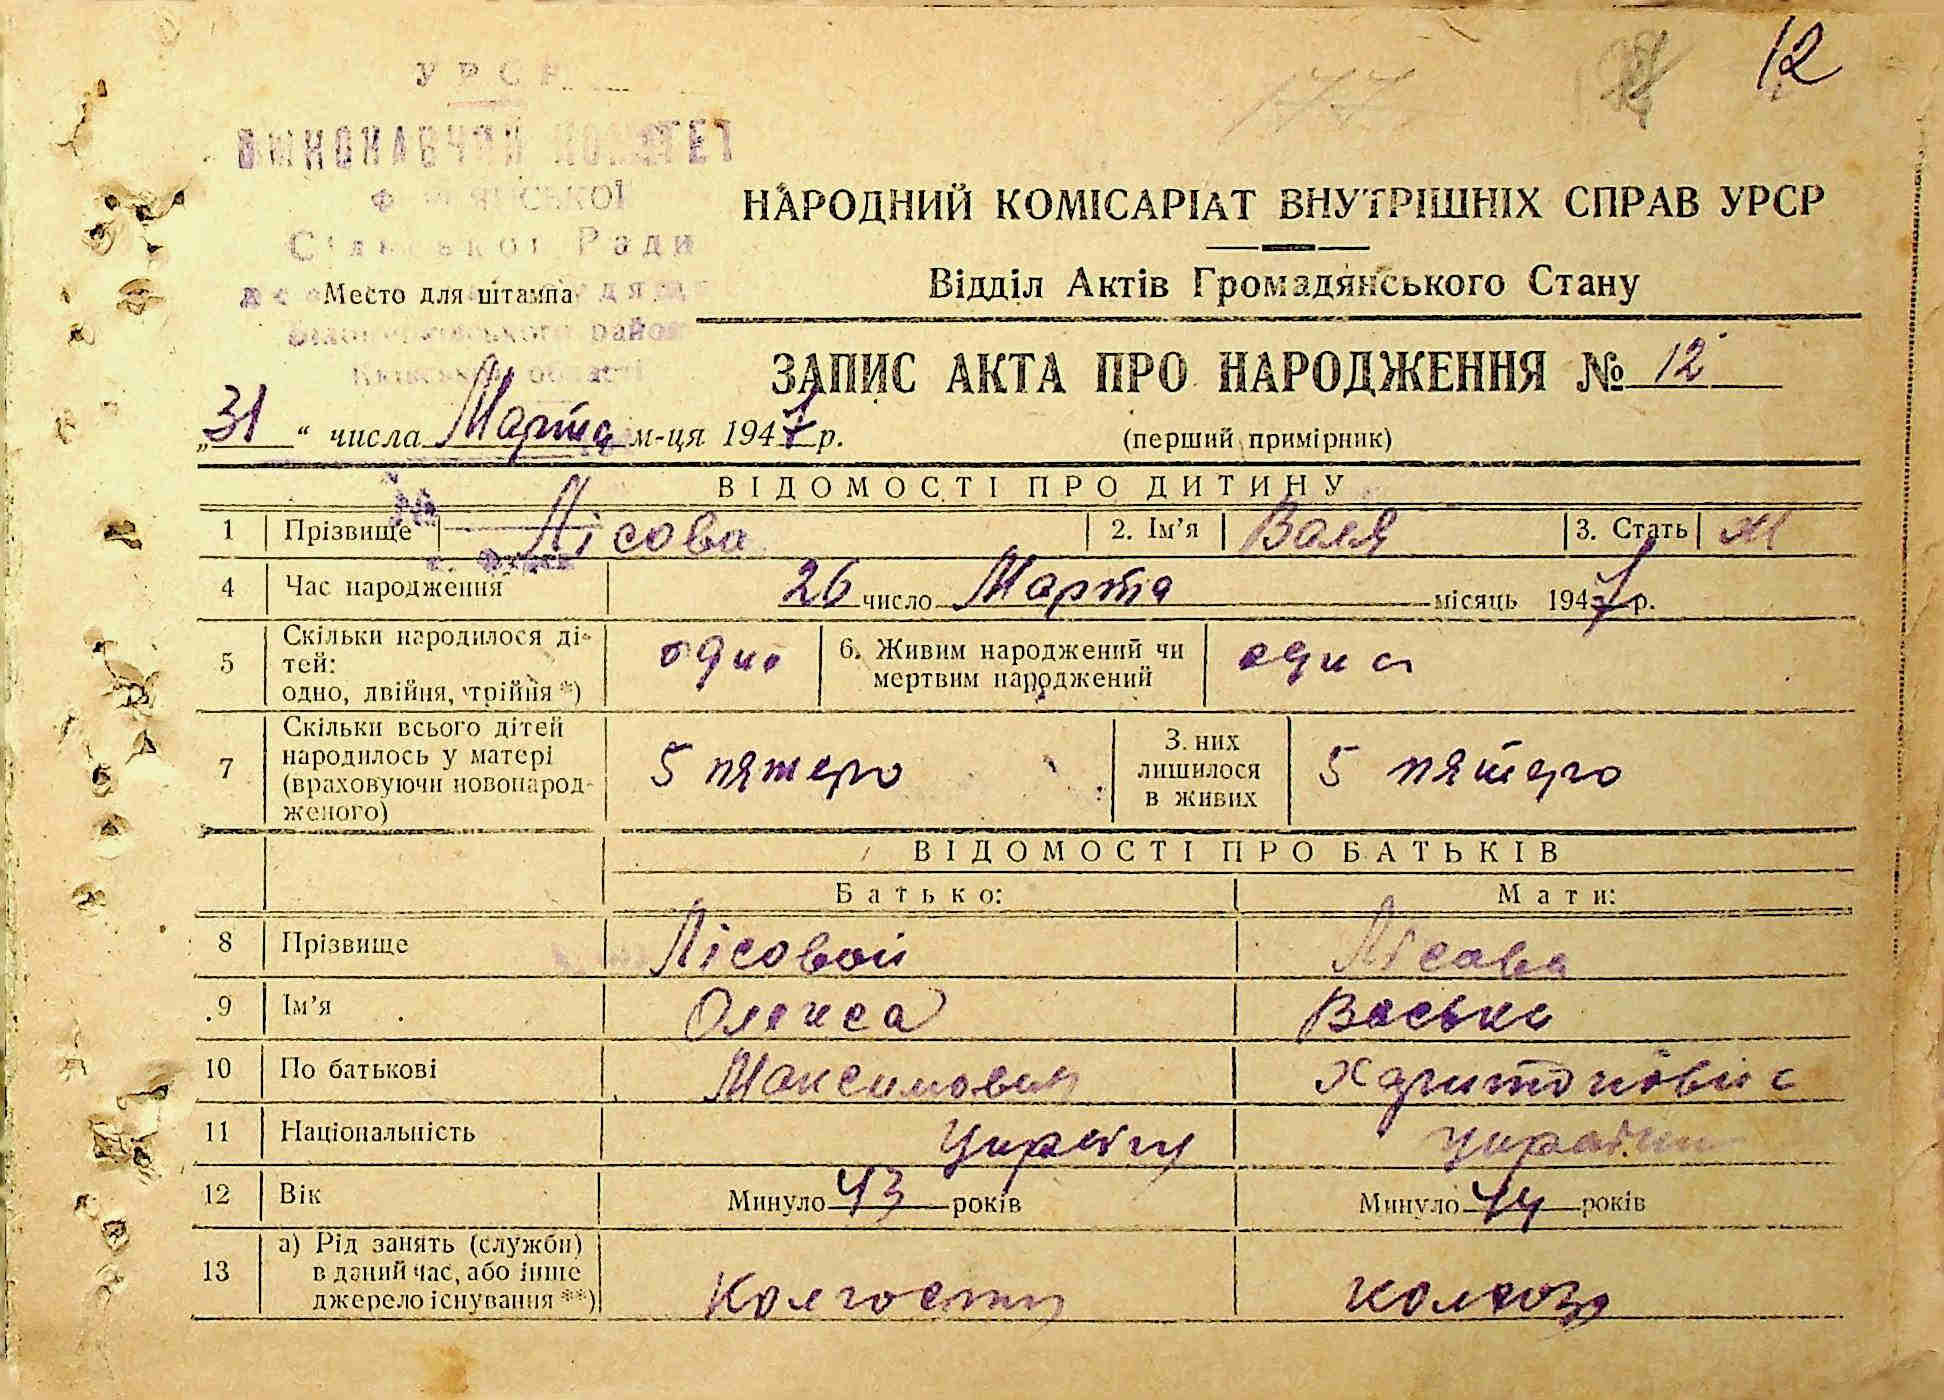 12
УРСР
ВИКОНАВЧИЙ КОМІТЕТ
Сільської Ради
Місто для штампа
району
Київської області
НАРОДНИЙ КОМІСАРІАТ ВНУТРІШНІХ СПРАВ УРСР
Відділ Актів Громадянського Стану
ЗАПИС АКТА ПРО НАРОДЖЕННЯ № 12
„31“ числа Марта м-ця 1947 р.
(перший примірник)
ВІДОМОСТІ ПРО ДИТИНУ
1 Прізвище Лісова 2. Ім'я Валя 3. Стать Ж
4 Час народження 26 число Марта місяць 1947 р.
5 Скільки народилося ді-
тей:
одно, двійня, трійня *) одно
6. Живим народжений чи
мертвим народжений одна
7 Скільки всього дітей
народилось у матері
(враховуючи новонарод-
женого) 5 пятеро
З них
лишилося
в живих 5 пятеро
ВІДОМОСТІ ПРО БАТЬКІВ
Батько: Мати:
8 Прізвище Лісовой Лісова
9 Ім'я Олекса Васька
10 По батькові Максимович
11 Національність
12 Вік Минуло 43 років Минуло 44 років
13 а) Рід занять (служби)
в даний час, або інше
джерело існування **)